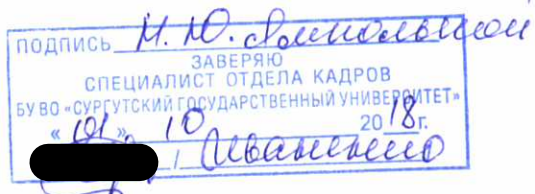 ПОДПИСЬ Н. Ю.
ЗАВЕРЯЮ
СПЕЦИАЛИСТ ОТДЕЛА КАДРОВ
БУ ВО «СУРГУТСКИЙ ГОСУДАРСТВЕННЫЙ УНИВЕРСИТЕТ»
« 01 » 10 2018г.
/ Иваненко